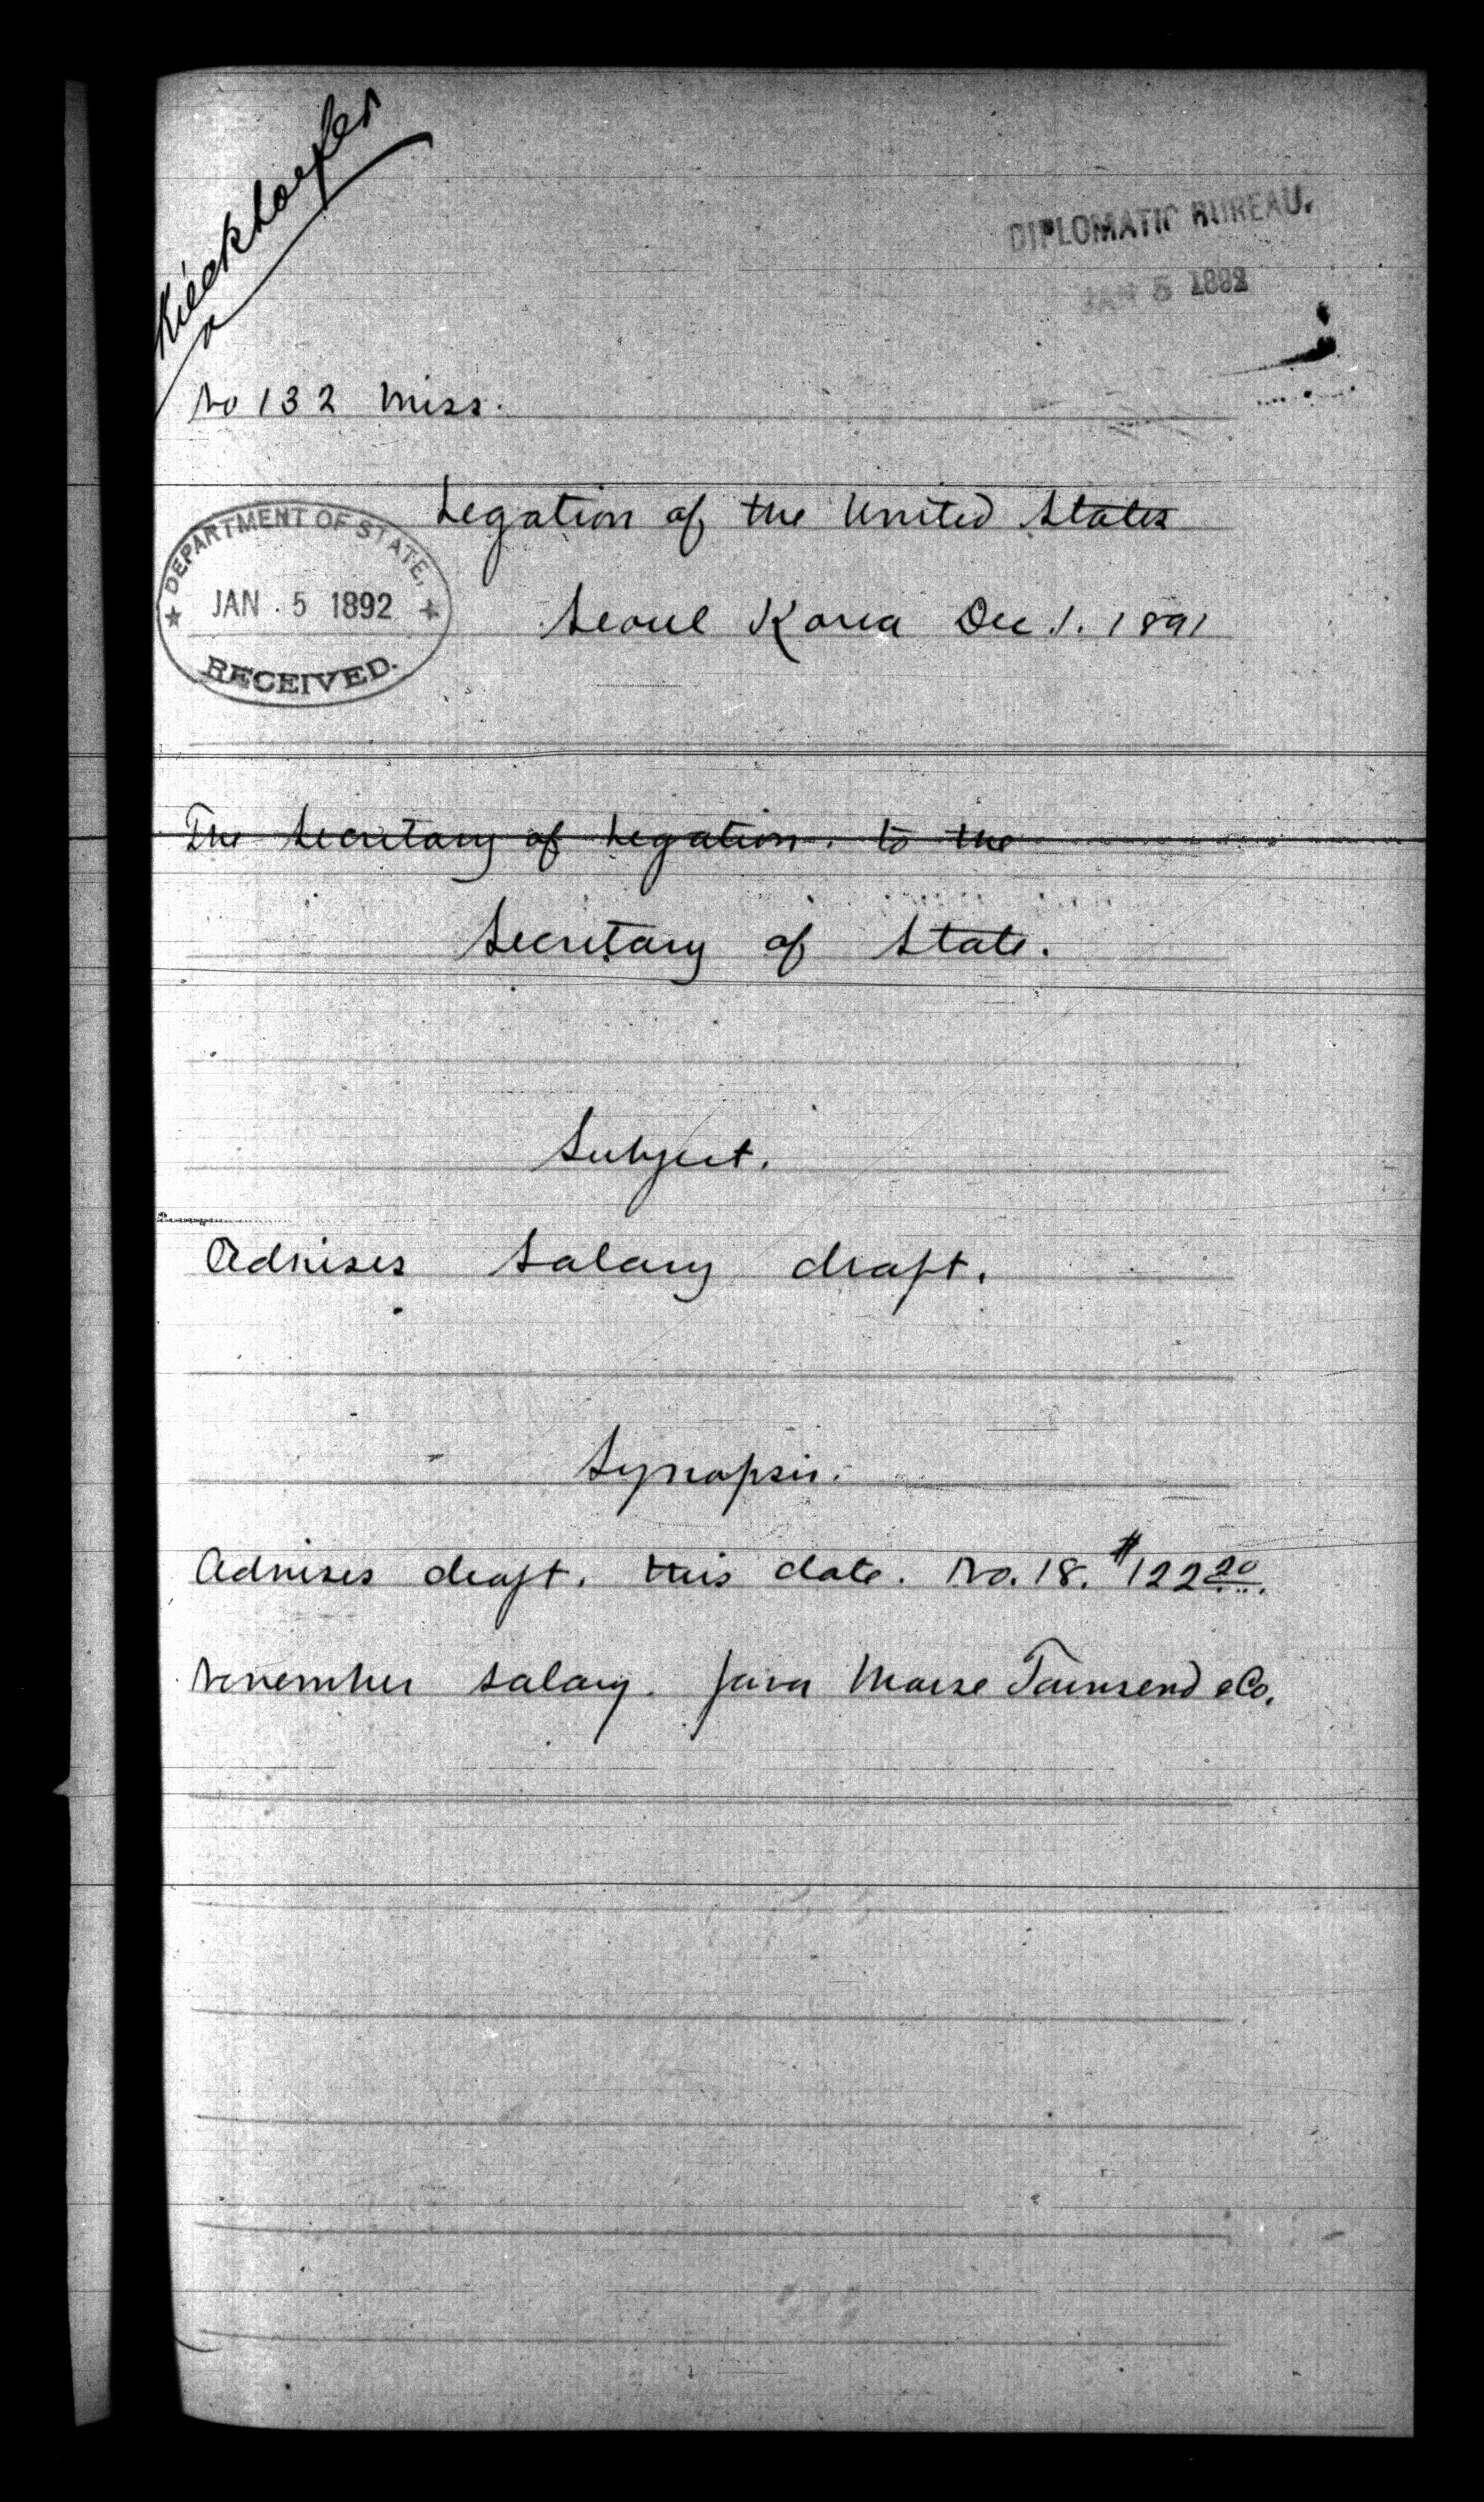 Kieckhoefer
DIPLOMATIC BUREAU.
JAN 5 1892
No 132 Miss.
Legation of the United States
DEPARTMENT OF STATE,
JAN. 5 1892
RECEIVED.
Seoul Korea Dec. 1. 1891
The Secretary of Legation. to the
Secretary of State.
Subject.
Advises salary draft.
Synopsis.
Advises draft. this date. No. 18. $122 20.
November salary. favor Morse Townsend & Co.